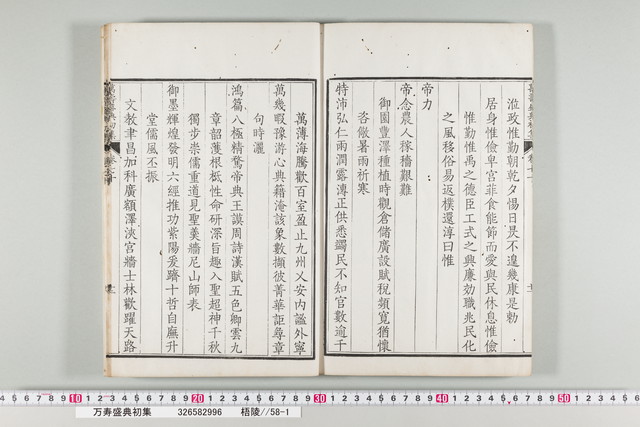 涖政惟勤朝乾夕惕日昃不遑幾康是勅
居身惟儉卑宮菲食能節而愛與民休息惟儉
惟勤惟禹之德臣工式之興廉効職兆民化
之風移俗易返樸還淳曰惟
帝力
帝念農人稼穡艱難
御園豐澤種植時觀倉儲廣設賦稅頻寬猶懷
咨儆暑雨祈寒
特沛弘仁雨潤露漙正供悉蠲民不知官數逾千
萬薄海騰歡百室盈止九州乂安内謐外寧
萬幾暇豫游心典籍淹該象數擷彼菁華詎尋章
句時灑
鴻篇八極精驁帝典王謨周詩漢賦五色卿雲九
章韶濩根柢性命研深旨趣入聖超神千秋
獨步崇儒重道見聖羹牆尼山師表
御墨輝煌發明六經推功紫陽爰躋十哲自廡升
堂儒風丕振
文敎聿昌加科廣額澤浹宮牆士林歡躍天路
10 20 30 40 50
万寿盛典初集 326582996 梧陵//58-1